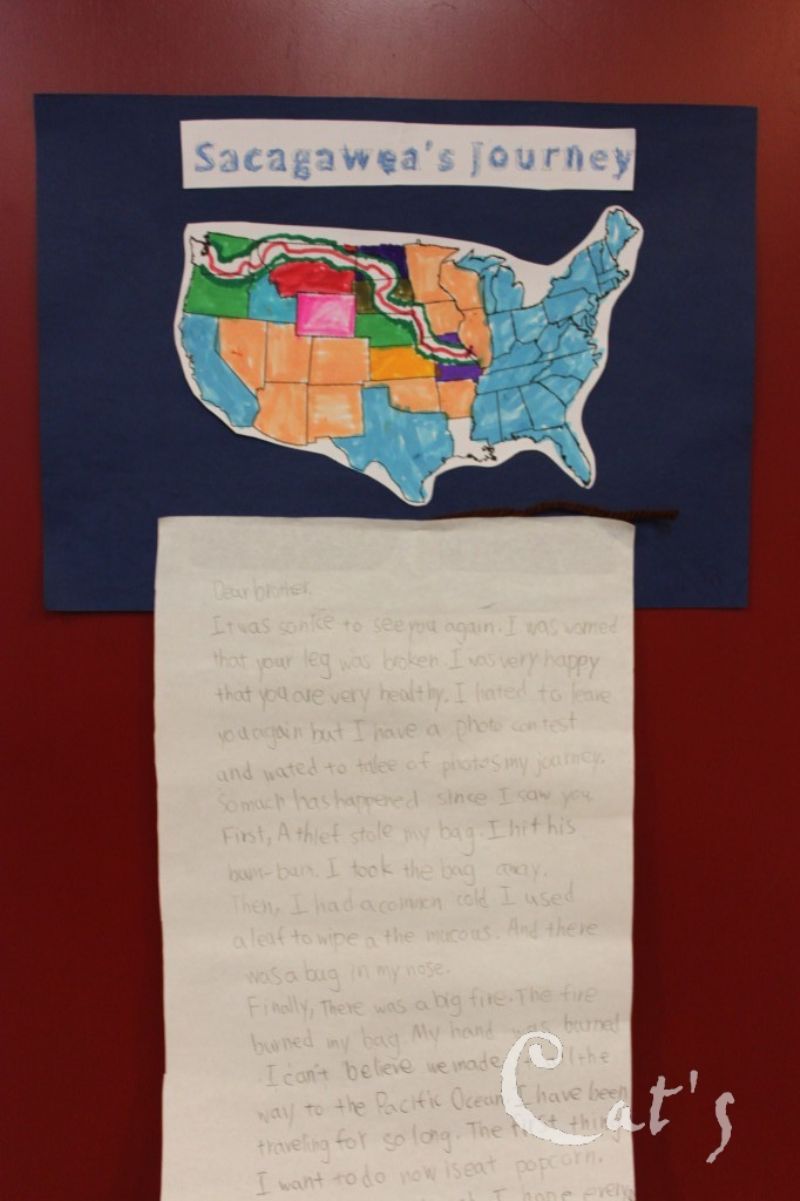 Sacagawea's journey
Dear brother.
It was so nice to see you again. I was worried
that your leg was broken. I was very happy
that you are very healthy. I hated to leave
you again but I have a photo contest
and wated to take of photos my journey.
So much has happened since I saw you.
First, A thief stole my bag. I hit his
bum-bum. I took the bag away.
Then, I had a common cold I used
a leaf to wipe a the mucous. And there
was a bug in my nose.
Finally, There was a big fire. The fire
burned my bag. My hand was burned
I can't believe we made the
way to the Pacific Ocean. I have been
traveling for so long. The first thing
I want to do now is eat popcorn.
I hope every
Cat's